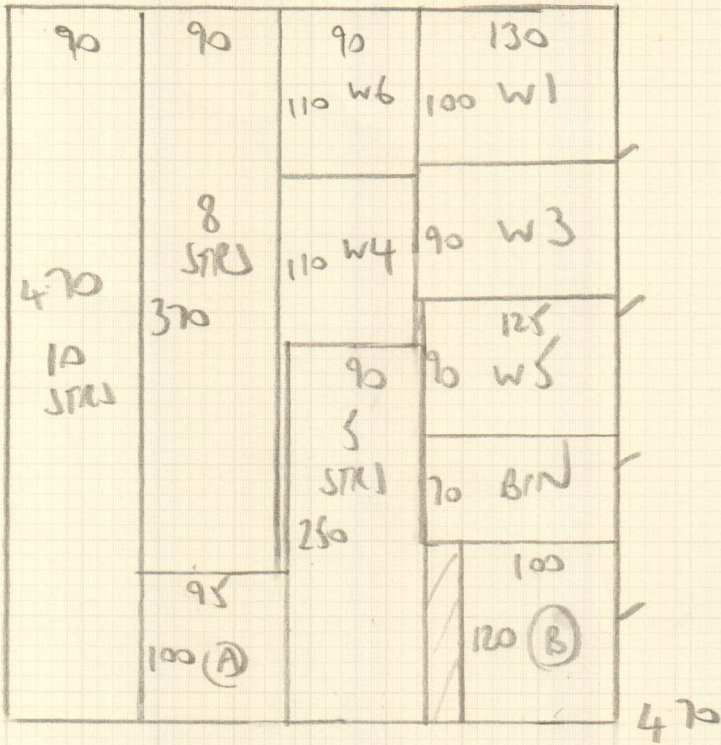 90
470
10
STRS
90
8
STRS
370
95
100 A
90
110 W6
110 W4
90
5
STRS
250
130
100 W1
90 W3
125
90 W5
70 BIN
100
120 B
470